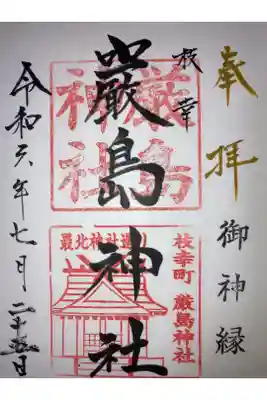 奉拝
御神縁
枝幸
厳島神社
厳島神社
最北神社通り
枝幸町 厳島神社
令和六年七月二十五日